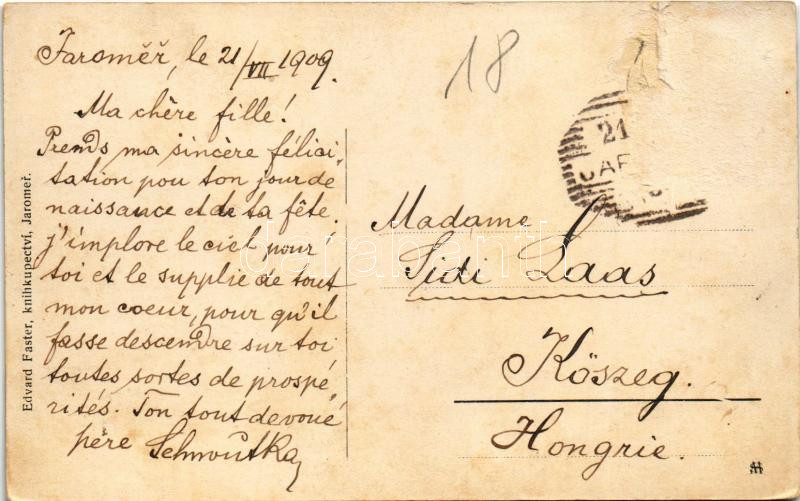 Jaroměř, le 21/VII 1909.
Ma chère fille!
Prends ma sincère félici-
tation pou ton jour de
naissance et de ta fête.
j'implore le ciel pour
toi et le supplie de tout
mon coeur, pour qu'il
fasse descendre sur toi
toutes sortes de prospé-
rités. Ton tout devoué
père
18
21
Madame
Sidi Laas
Kőszeg.
Hongrie.
Edvard Faster, knihkupectví, Jaroměř.
darabanth